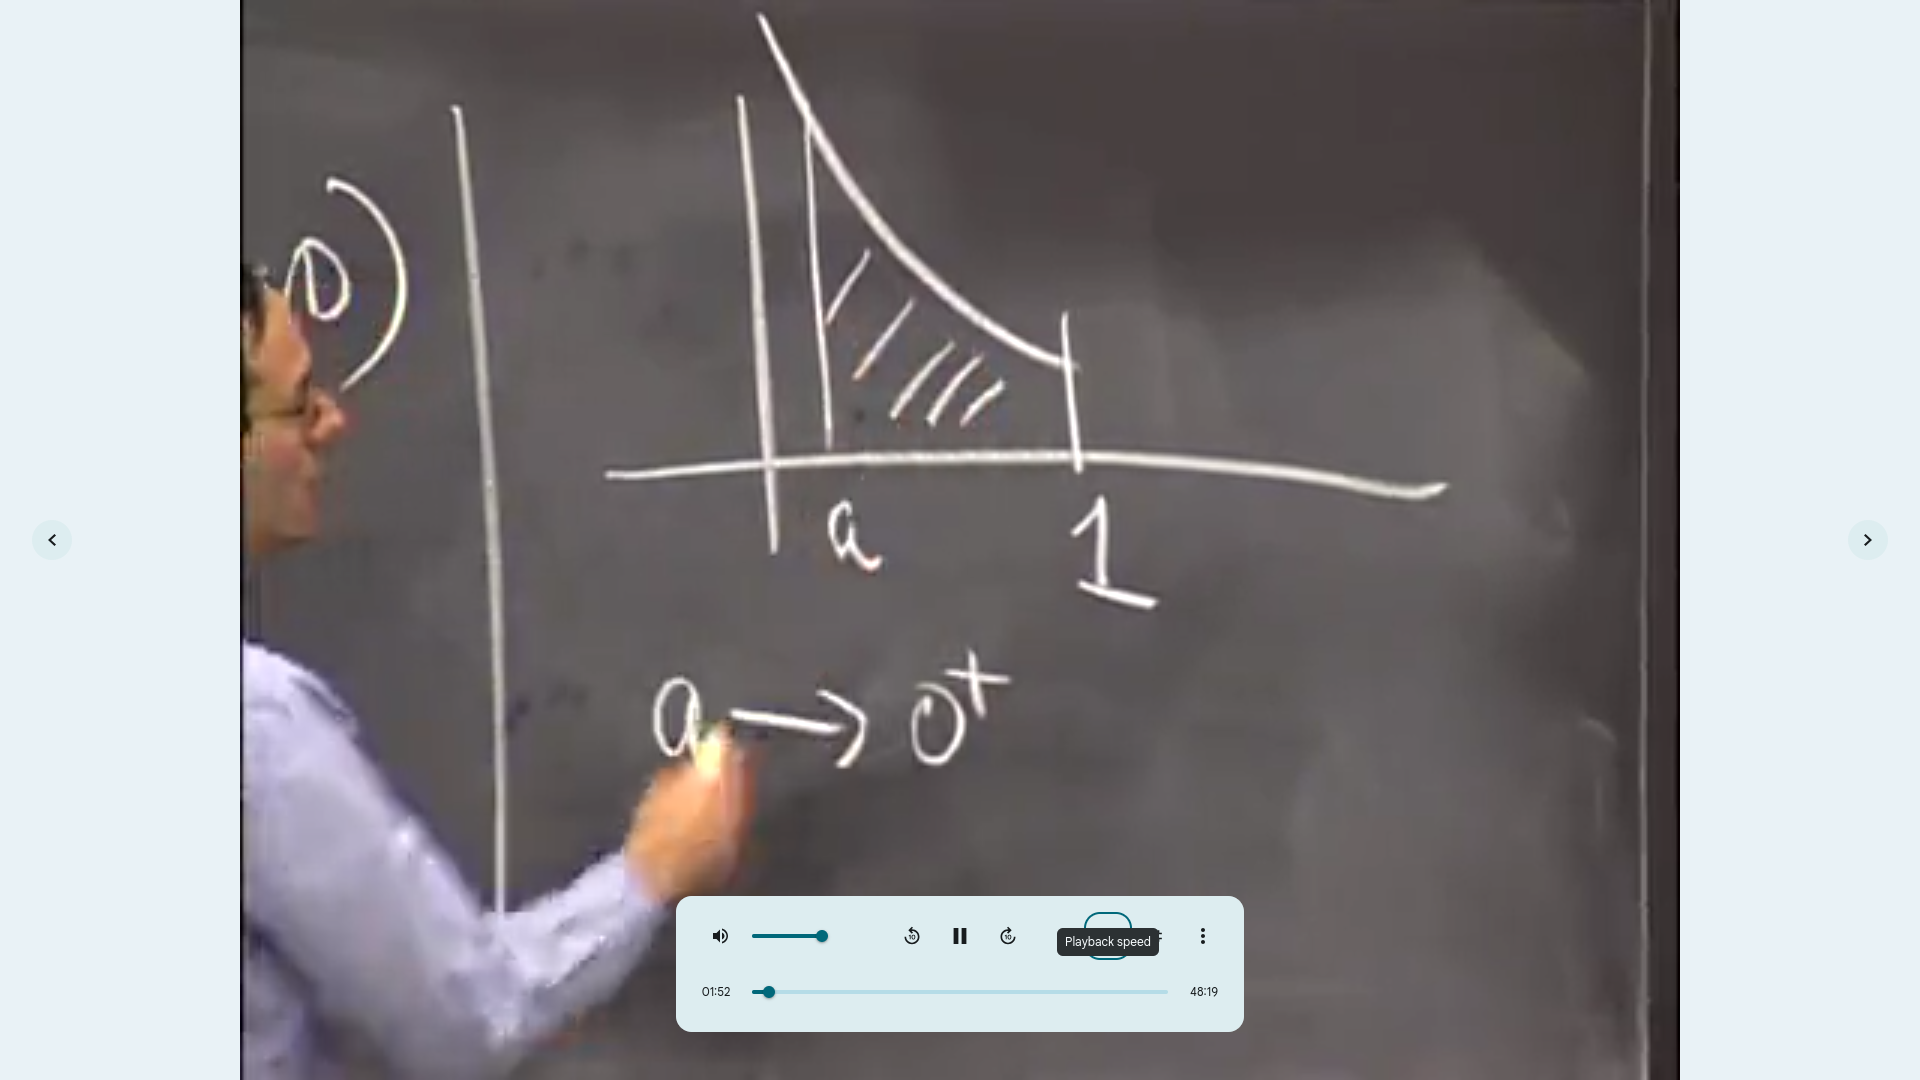 0)
a
1
a → 0⁺
Playback speed
01:52
48:19